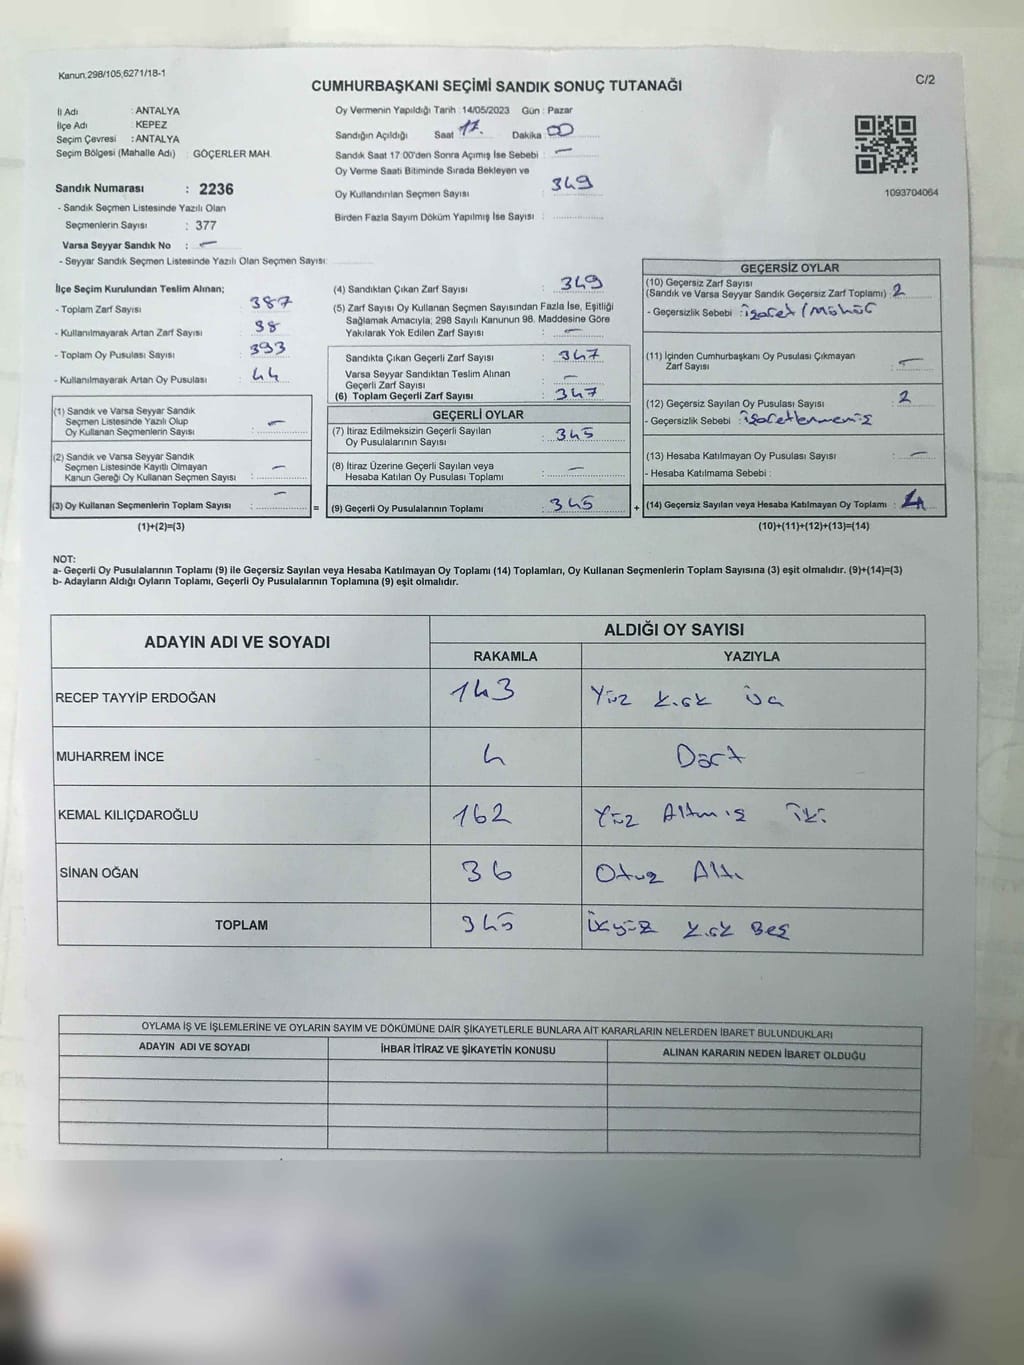 Kanun,298/105,6271/18-1
C/2
CUMHURBAŞKANI SEÇİMİ SANDIK SONUÇ TUTANAĞI
İl Adı : ANTALYA
İlçe Adı : KEPEZ
Seçim Çevresi : ANTALYA
Seçim Bölgesi (Mahalle Adı) : GÖÇERLER MAH.
Sandık Numarası : 2236
- Sandık Seçmen Listesinde Yazılı Olan
Seçmenlerin Sayısı : 377
Varsa Seyyar Sandık No : —
- Seyyar Sandık Seçmen Listesinde Yazılı Olan Seçmen Sayısı:
Oy Vermenin Yapıldığı Tarih : 14/05/2023 Gün : Pazar
Sandığın Açıldığı Saat 17. Dakika : 00
Sandık Saat 17:00'den Sonra Açımış İse Sebebi : —
Oy Verme Saati Bitiminde Sırada Bekleyen ve
Oy Kullandırılan Seçmen Sayısı : 349
Birden Fazla Sayım Döküm Yapılmış İse Sayısı :
1093704064
İlçe Seçim Kurulundan Teslim Alınan;
- Toplam Zarf Sayısı : 387
- Kullanılmayarak Artan Zarf Sayısı : 38
- Toplam Oy Pusulası Sayısı : 393
- Kullanılmayarak Artan Oy Pusulası : 44
(1) Sandık ve Varsa Seyyar Sandık
Seçmen Listesinde Yazılı Olup
Oy Kullanan Seçmenlerin Sayısı : —
(2) Sandık ve Varsa Seyyar Sandık
Seçmen Listesinde Kayıtlı Olmayan
Kanun Gereği Oy Kullanan Seçmen Sayısı : —
(3) Oy Kullanan Seçmenlerin Toplam Sayısı : — =
(1)+(2)=(3)
(4) Sandıktan Çıkan Zarf Sayısı : 349
(5) Zarf Sayısı Oy Kullanan Seçmen Sayısından Fazla İse, Eşitliği
Sağlamak Amacıyla; 298 Sayılı Kanunun 98. Maddesine Göre
Yakılarak Yok Edilen Zarf Sayısı : —
Sandıkta Çıkan Geçerli Zarf Sayısı : 347
Varsa Seyyar Sandıktan Teslim Alınan
Geçerli Zarf Sayısı : —
(6) Toplam Geçerli Zarf Sayısı : 347
GEÇERLİ OYLAR
(7) İtiraz Edilmeksizin Geçerli Sayılan
Oy Pusulalarının Sayısı : 345
(8) İtiraz Üzerine Geçerli Sayılan veya
Hesaba Katılan Oy Pusulası Toplamı : —
(9) Geçerli Oy Pusulalarının Toplamı : 345 +
GEÇERSİZ OYLAR
(10) Geçersiz Zarf Sayısı
(Sandık ve Varsa Seyyar Sandık Geçersiz Zarf Toplamı) : 2
- Geçersizlik Sebebi : işaret/Mühür
(11) İçinden Cumhurbaşkanı Oy Pusulası Çıkmayan
Zarf Sayısı : —
(12) Geçersiz Sayılan Oy Pusulası Sayısı : 2
- Geçersizlik Sebebi : işaretlenmemiş
(13) Hesaba Katılmayan Oy Pusulası Sayısı : —
- Hesaba Katılmama Sebebi :
(14) Geçersiz Sayılan veya Hesaba Katılmayan Oy Toplamı : 4
(10)+(11)+(12)+(13)=(14)
NOT:
a- Geçerli Oy Pusulalarının Toplamı (9) ile Geçersiz Sayılan veya Hesaba Katılmayan Oy Toplamı (14) Toplamları, Oy Kullanan Seçmenlerin Toplam Sayısına (3) eşit olmalıdır. (9)+(14)=(3)
b- Adayların Aldığı Oyların Toplamı, Geçerli Oy Pusulalarının Toplamına (9) eşit olmalıdır.
ADAYIN ADI VE SOYADI
ALDIĞI OY SAYISI
RAKAMLA YAZIYLA
RECEP TAYYİP ERDOĞAN 143 Yüz kırk üç
MUHARREM İNCE 4 Dört
KEMAL KILIÇDAROĞLU 162 Yüz Altmış iki
SİNAN OĞAN 36 Otuz Altı
TOPLAM 345 üçyüz kırk Beş
OYLAMA İŞ VE İŞLEMLERİNE VE OYLARIN SAYIM VE DÖKÜMÜNE DAİR ŞİKAYETLERLE BUNLARA AİT KARARLARIN NELERDEN İBARET BULUNDUKLARI
ADAYIN ADI VE SOYADI İHBAR İTİRAZ VE ŞİKAYETİN KONUSU ALINAN KARARIN NEDEN İBARET OLDUĞU